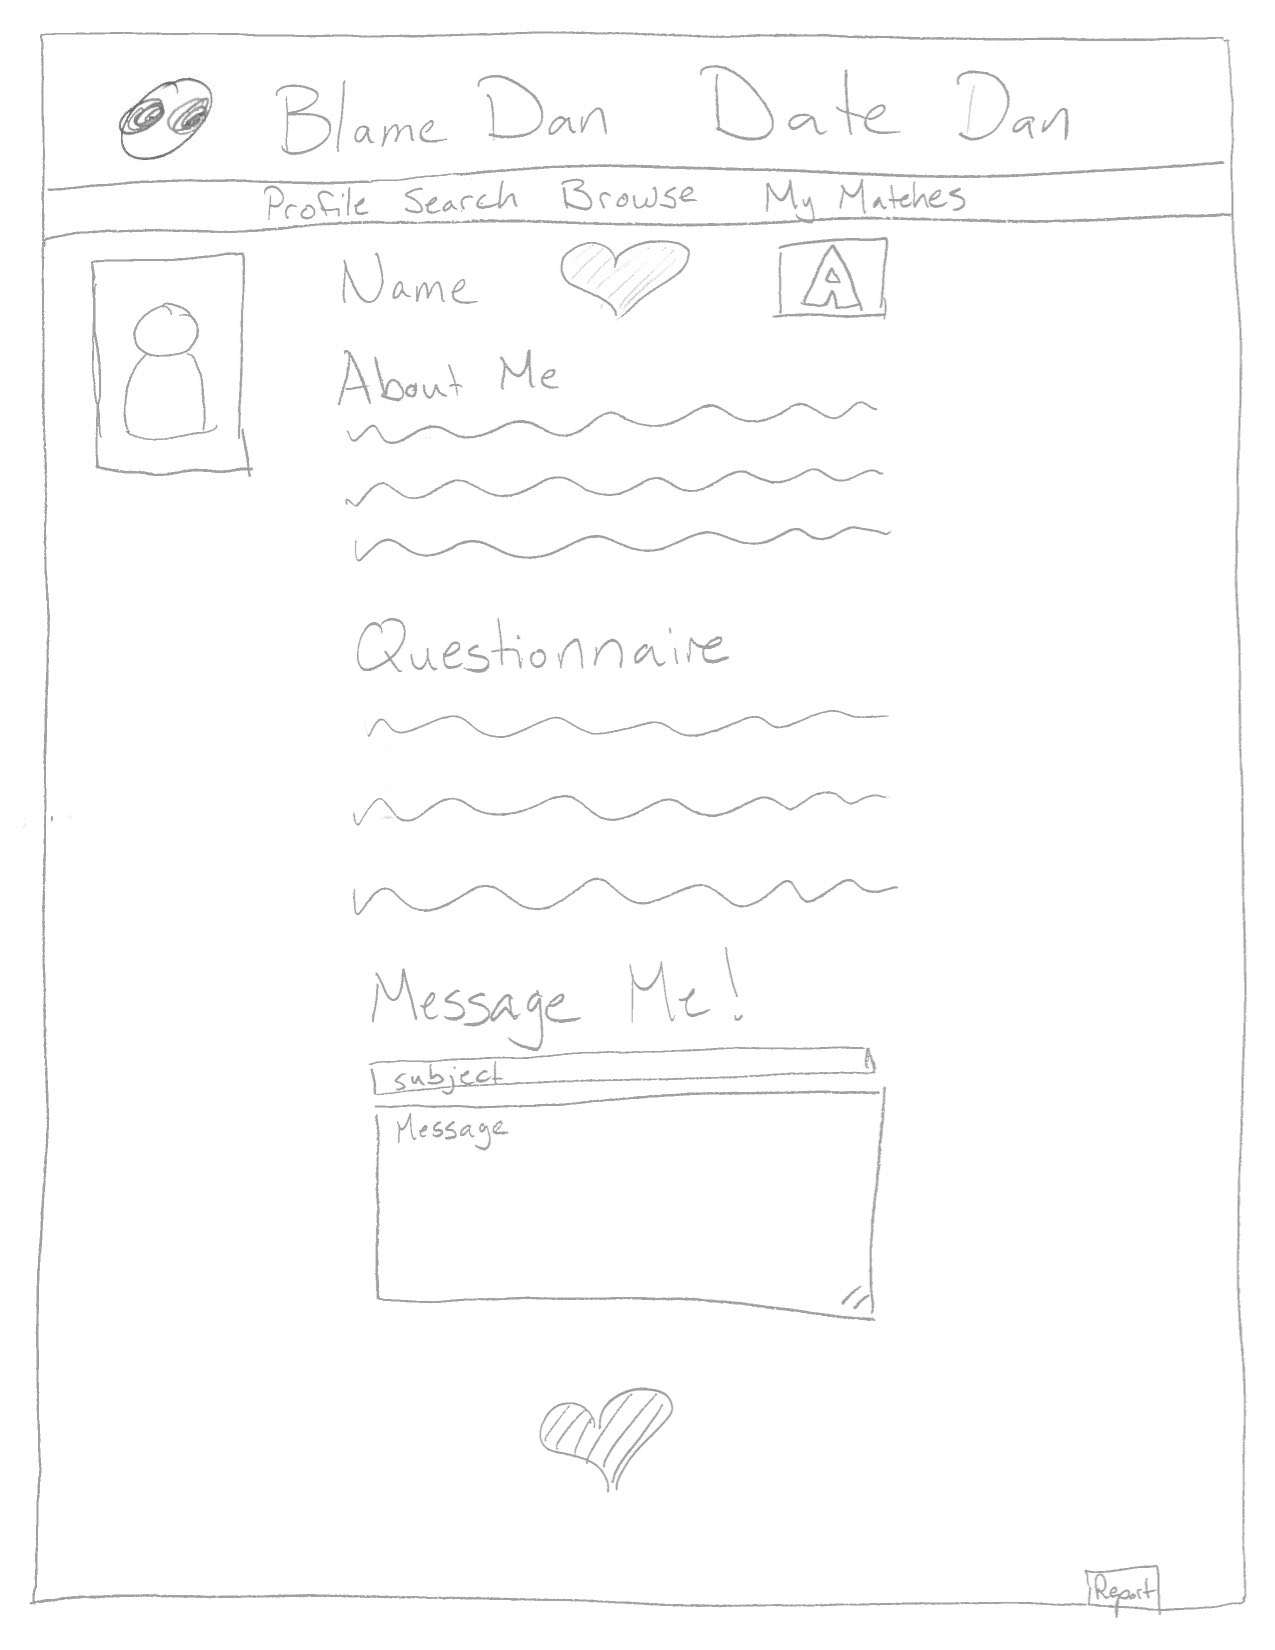 Blame Dan Date Dan
Profile Search Browse My Matches
Name A
About Me
Questionnaire
Message Me!
subject
Message
Report